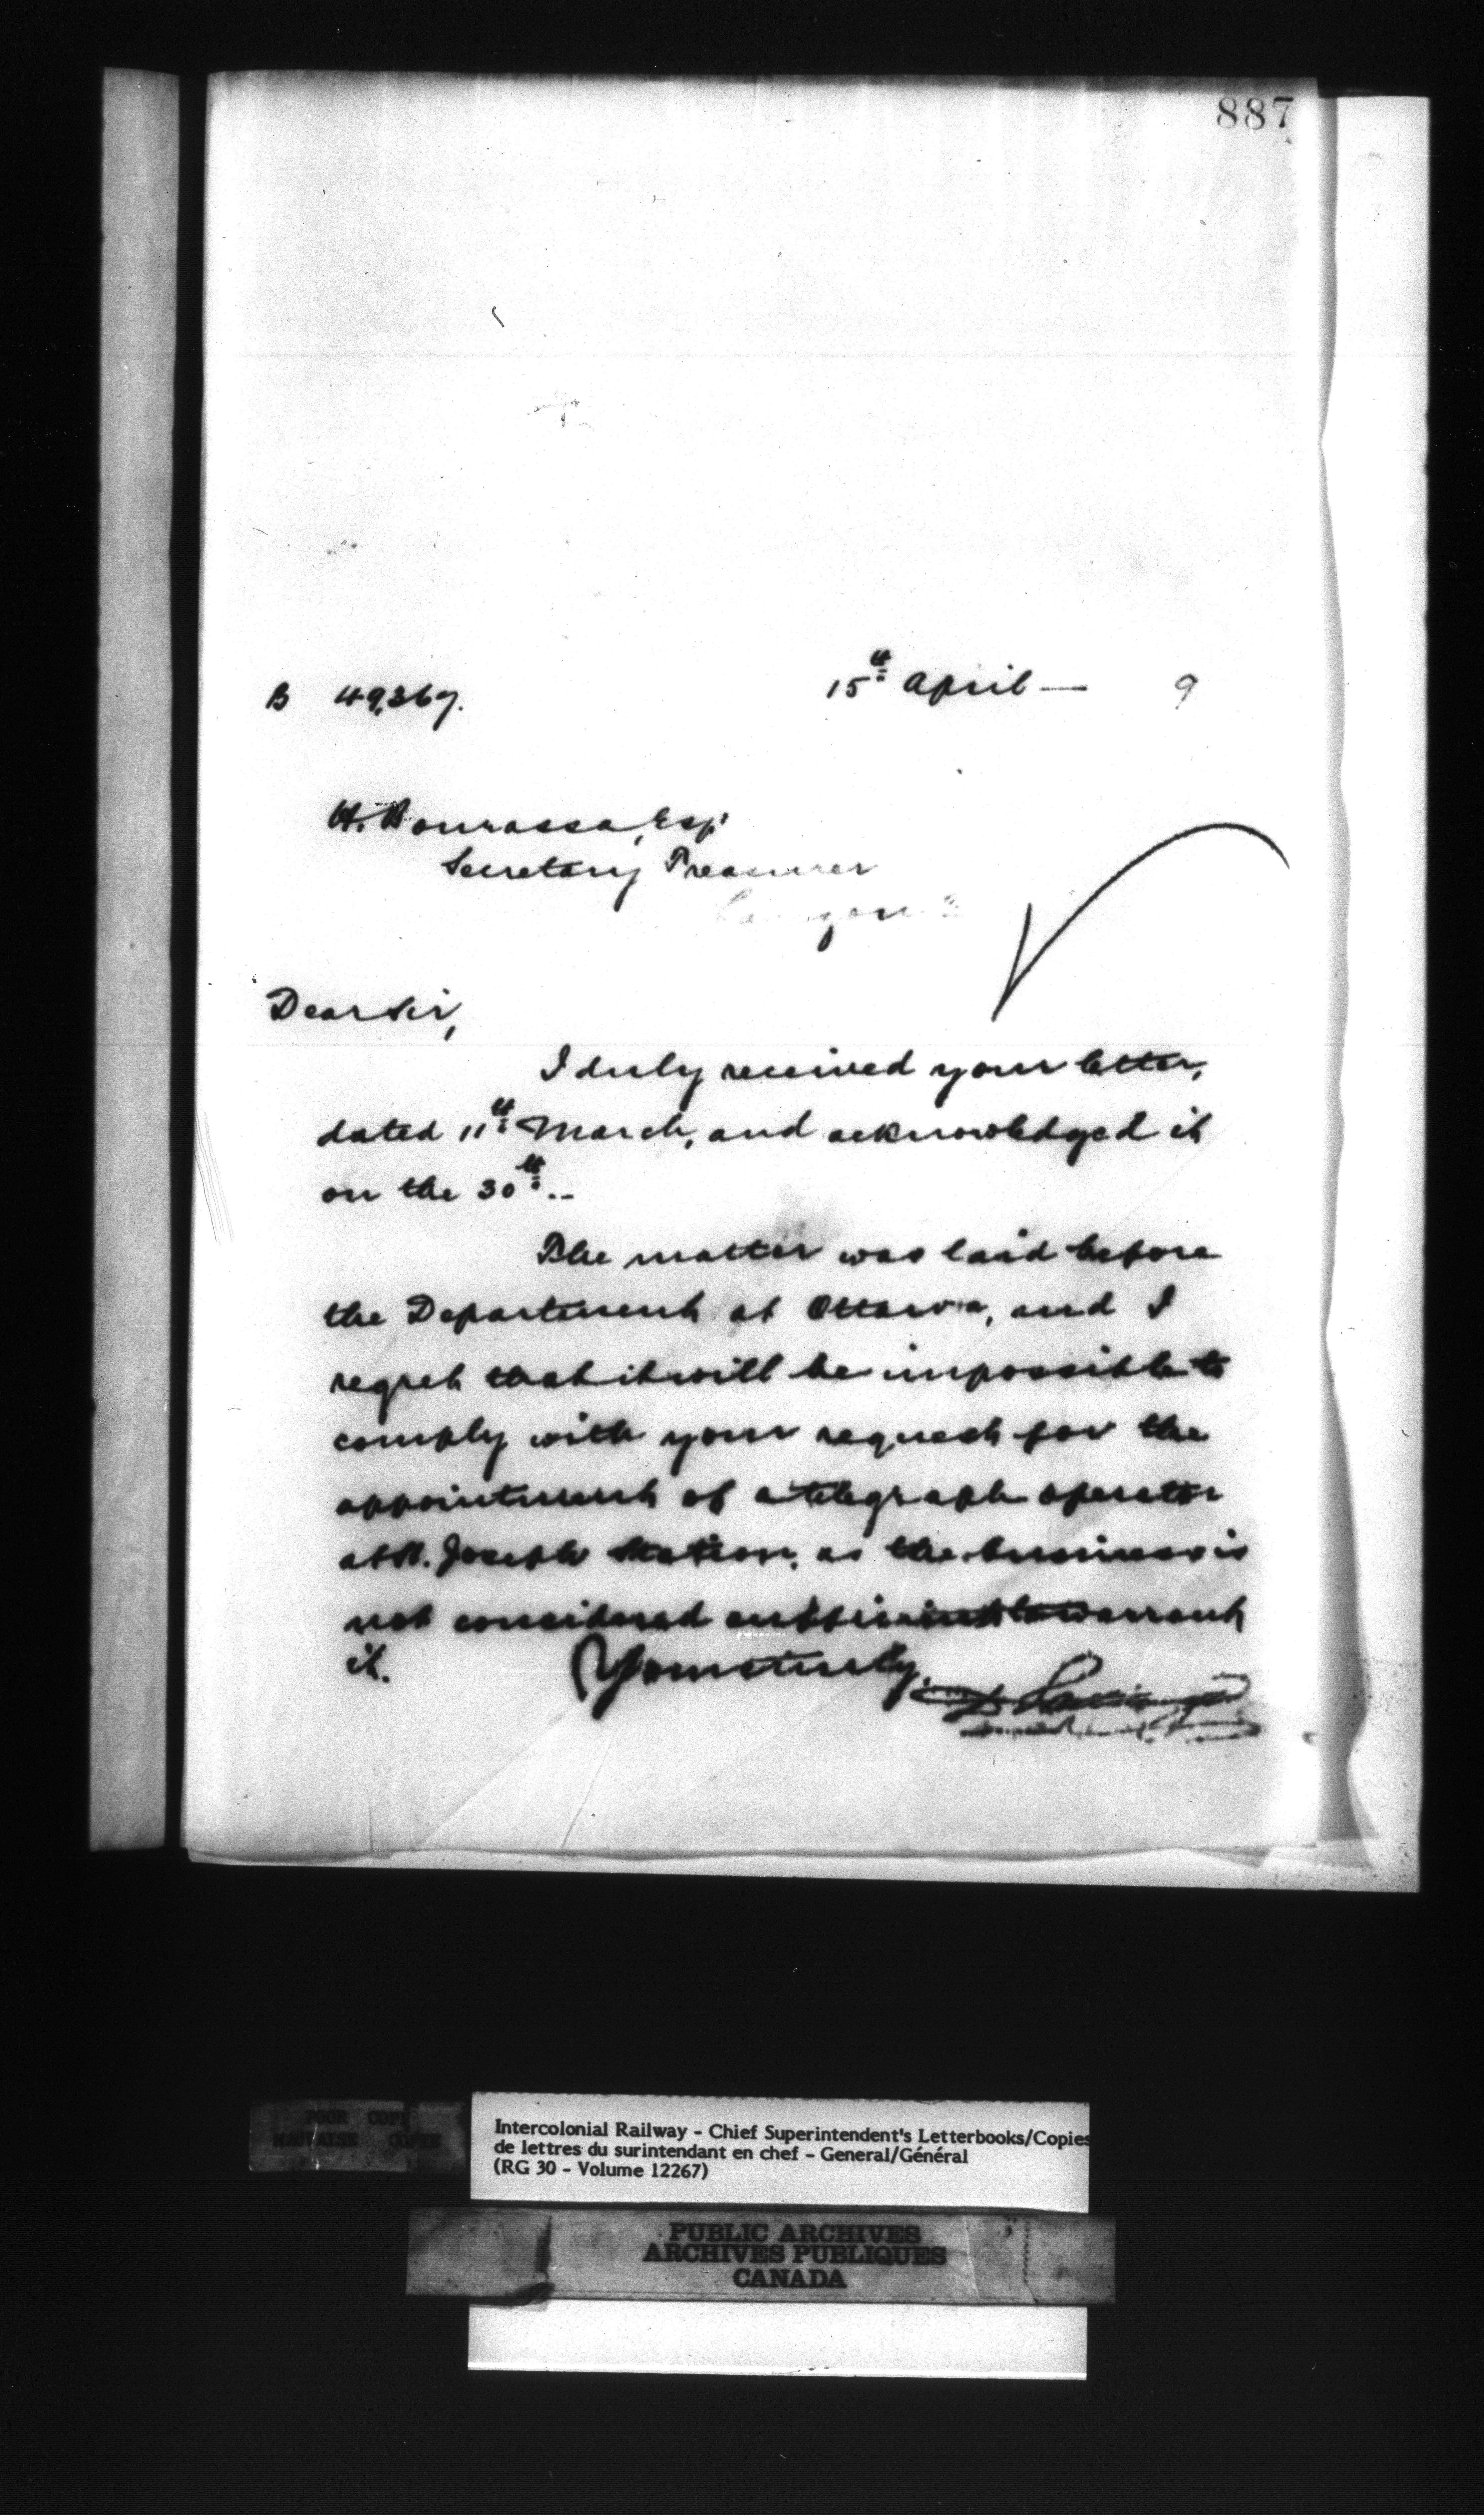 887
B 49,367.
15th April — 9
H. Bourassa, Esq.
Secretary Treasurer
Dear Sir,
I duly received your letter,
dated 11th March, and acknowledged it
on the 30th..
The matter was laid before
the Department at Ottawa, and I
regret that it will be impossible to
comply with your request for the
appointment of a telegraph operator
at St. Joseph Station, as the business is
not considered sufficient to warrant
it.
Yours truly,
POOR COPY
MAUVAISE COPIE
Intercolonial Railway - Chief Superintendent's Letterbooks/Copies
de lettres du surintendant en chef - General/Général
(RG 30 - Volume 12267)
PUBLIC ARCHIVES
ARCHIVES PUBLIQUES
CANADA